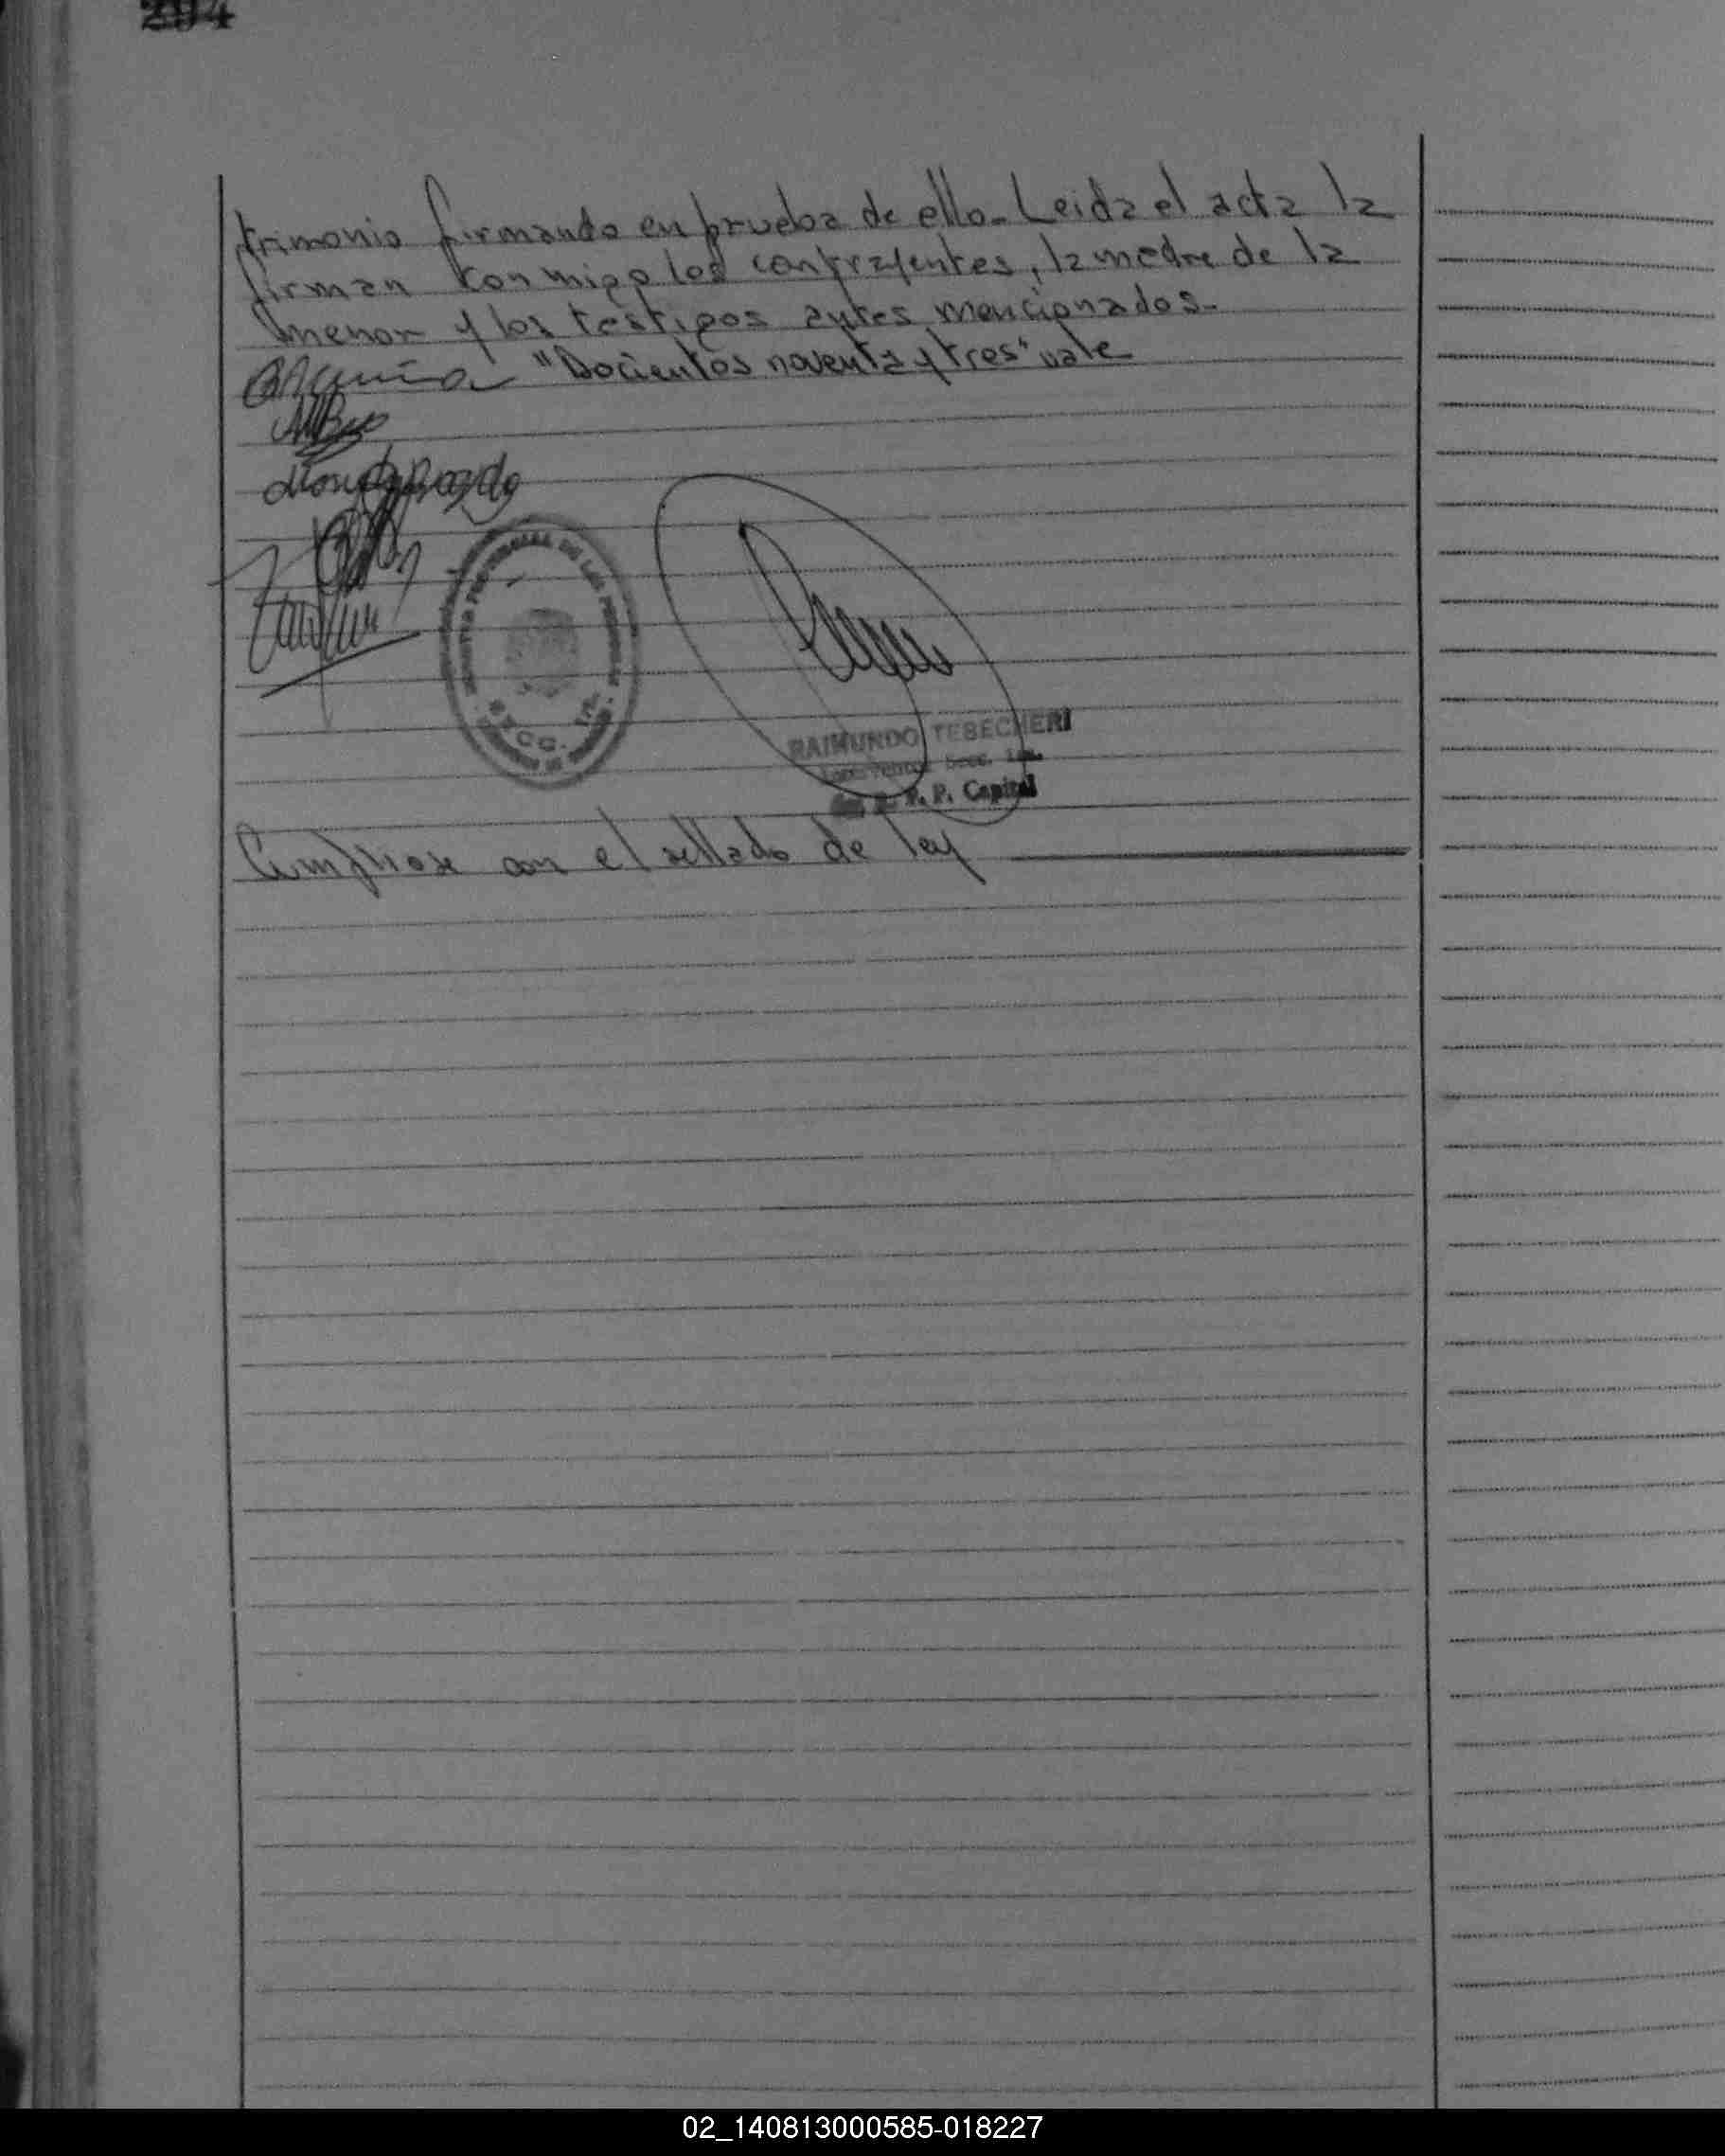 294
trimonio firmando en prueba de ello. Leida el acta la
firman conmigo los contrayentes, la madre de la
menor y los testigos antes mencionados.-
"Docientos noventa y tres" vale
RAIMUNDO TEBECHERI
R. P. Capital
Cumpliose con el sellado de ley
02_140813000585-018227